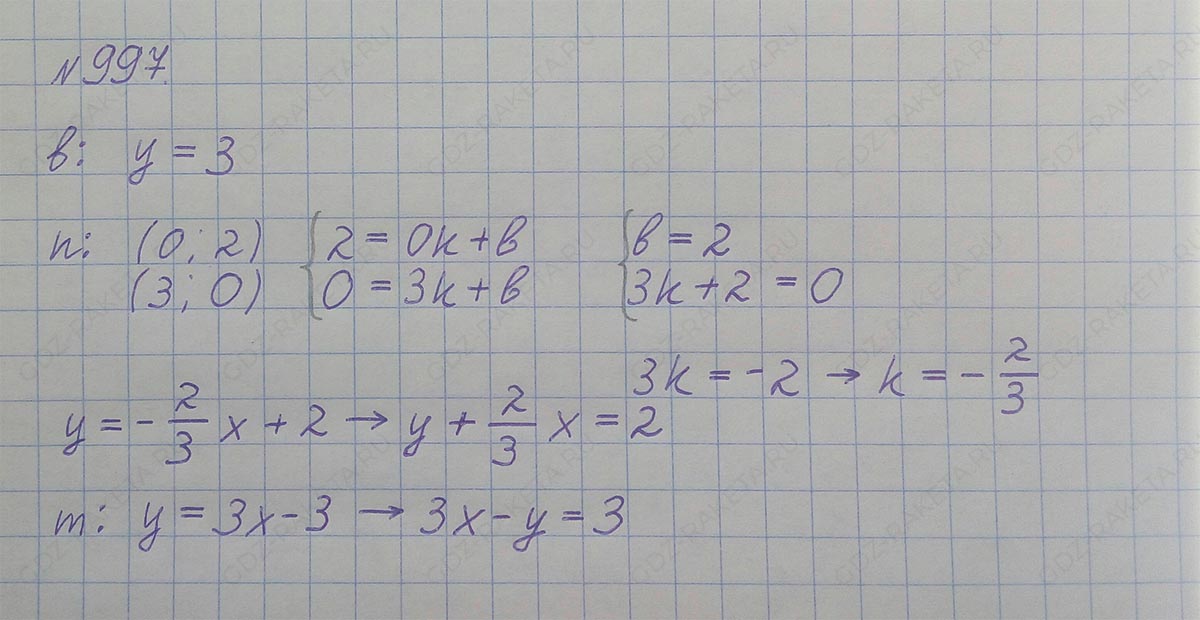 №997.
в: y = 3
n: (0; 2) { 2 = 0k + в { в = 2
(3; 0) 0 = 3k + в 3k + 2 = 0
3k = -2 → k = -2/3
y = -2/3 x + 2 → y + 2/3 x = 2
m: y = 3x - 3 → 3x - y = 3
GDZ-RAKETA.RU